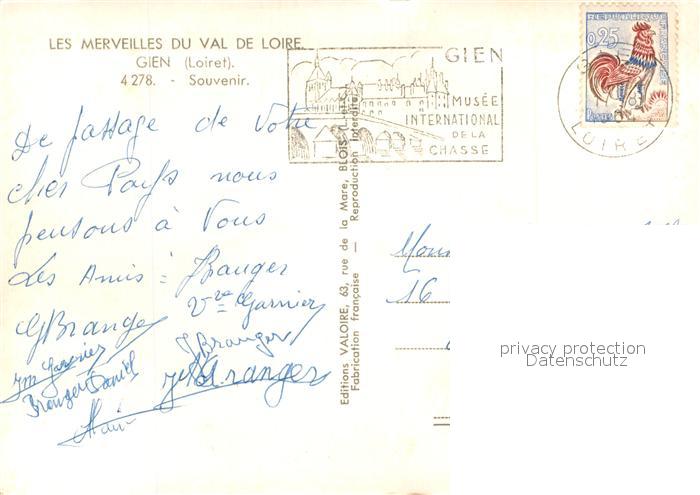 LES MERVEILLES DU VAL DE LOIRE
GIEN (Loiret).
4 278. - Souvenir.
De passage de Votre
cher Pays nous
pensons à Vous
Les Amis : Branger
Vve Garnier
G Branger
J Branger
JM Garnier
Branger Daniel
Branger
Alain
Editions VALOIRE, 63, rue de la Mare, BLOIS (L.-et-C.)
Fabrication française — Reproduction interdite.
GIEN
MUSÉE
INTERNATIONAL
DE LA
CHASSE
REPUBLIQUE
0,25
Postes
GIEN
LOIRET
16
privacy protection
Datenschutz